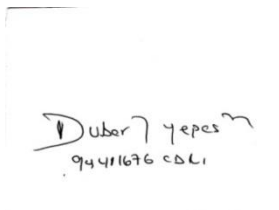 Duber Yepes M
94411676 CDLI